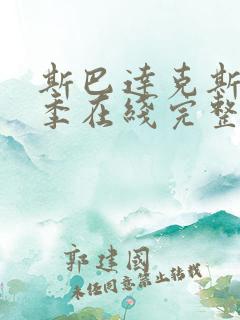 斯巴達克斯
季在綫完整
郭建國
未经同意禁止转载